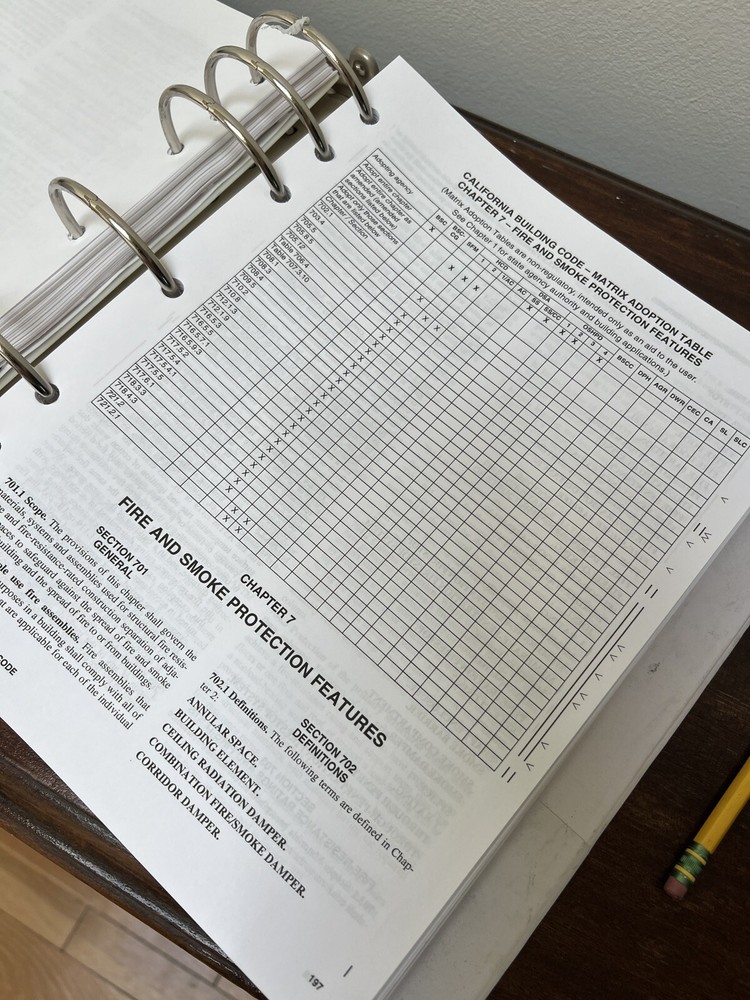 CALIFORNIA BUILDING CODE – MATRIX ADOPTION TABLE
CHAPTER 7 – FIRE AND SMOKE PROTECTION FEATURES
(Matrix Adoption Tables are non-regulatory, intended only as an aid to the user.
See Chapter 1 for state agency authority and building applications.)
Adopting agency
BSC
BSC-CG
SFM
HCD
1 2 1/AC
DSA
AC SS SS/CC
OSHPD
1 2 3 4
BSCC
DPH
AGR
DWR
CEC
CA
SL
SLC
Adopt entire chapter
Adopt entire chapter as
amended (amended
sections listed below)
Adopt only those sections
that are listed below
Chapter / Section
702.1
703.4
705.5
Table 706.4
708.1
708.3
708.4
709.5
710.2
710.8
717.5.2
717.5.4.1
717.5.5
717.6.1
718.3.3
718.4.3
721.2
721.2.1
CHAPTER 7
FIRE AND SMOKE PROTECTION FEATURES
SECTION 701
GENERAL
701.1 Scope. The provisions of this chapter shall govern the
materials, systems and assemblies used for structural fire resis-
and fire-resistance-rated construction separation of adja-
to safeguard against the spread of fire and smoke
building and the spread of fire to or from buildings.
use fire assemblies. Fire assemblies that
purposes in a building shall comply with all of
that are applicable for each of the individual
SECTION 702
DEFINITIONS
702.1 Definitions. The following terms are defined in Chap-
ter 2:
ANNULAR SPACE.
BUILDING ELEMENT.
CEILING RADIATION DAMPER.
COMBINATION FIRE/SMOKE DAMPER.
CORRIDOR DAMPER.
CODE
197